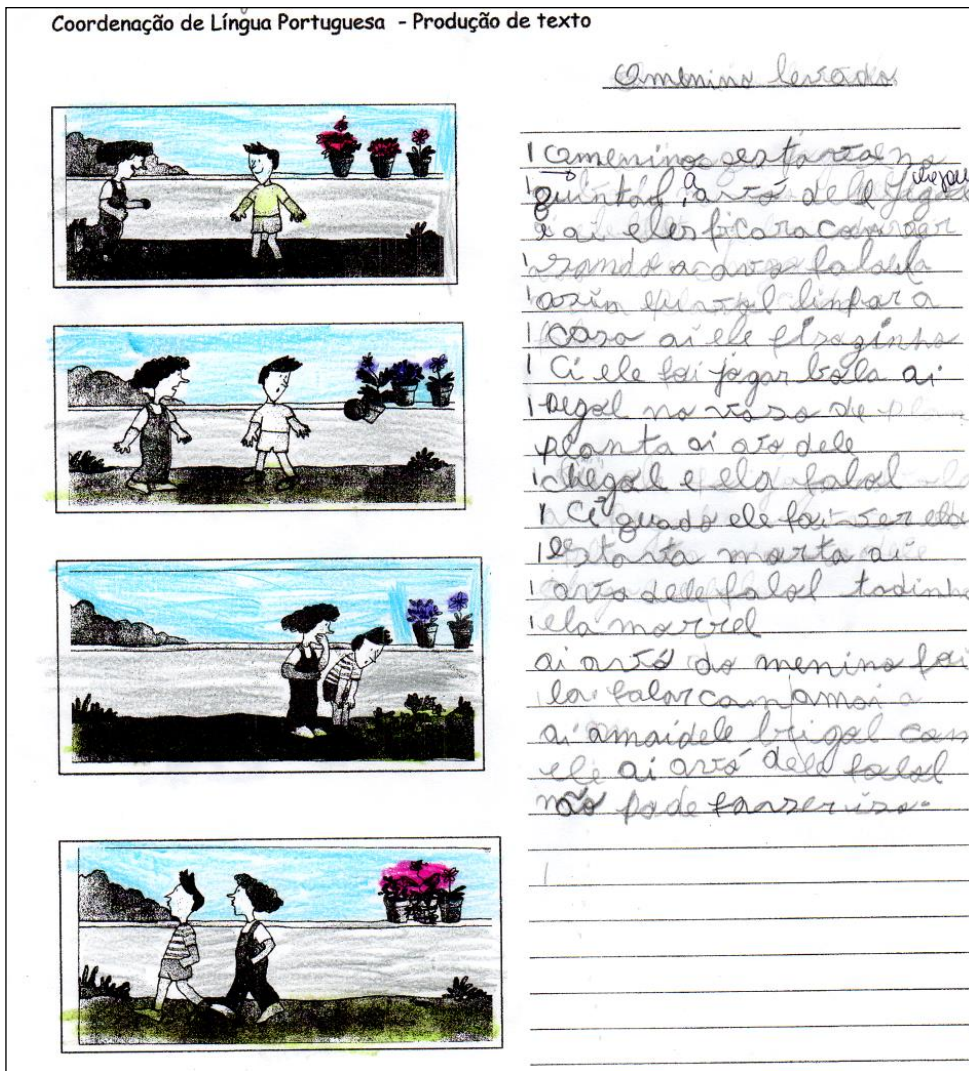 Coordenação de Língua Portuguesa - Produção de texto
Omenino levado
Omenino estava no
quintal, a avó dele chegou
e ai eles ficara conver
sando a avo falou
asim que vol linpar a
casa ai ele fi sozinho
Ci ele foi jogar bola ai
pegol no vaso de
planta ai avo dele
chegol e ela falol
Ci quado ele foi ver ela
estava morta ai
avo dele falol todinha
ela morrel
ai avó do menino foi
la falar com amai
ai amaidele brigol com
ele ai avó dele falol
não pode fanser iso.